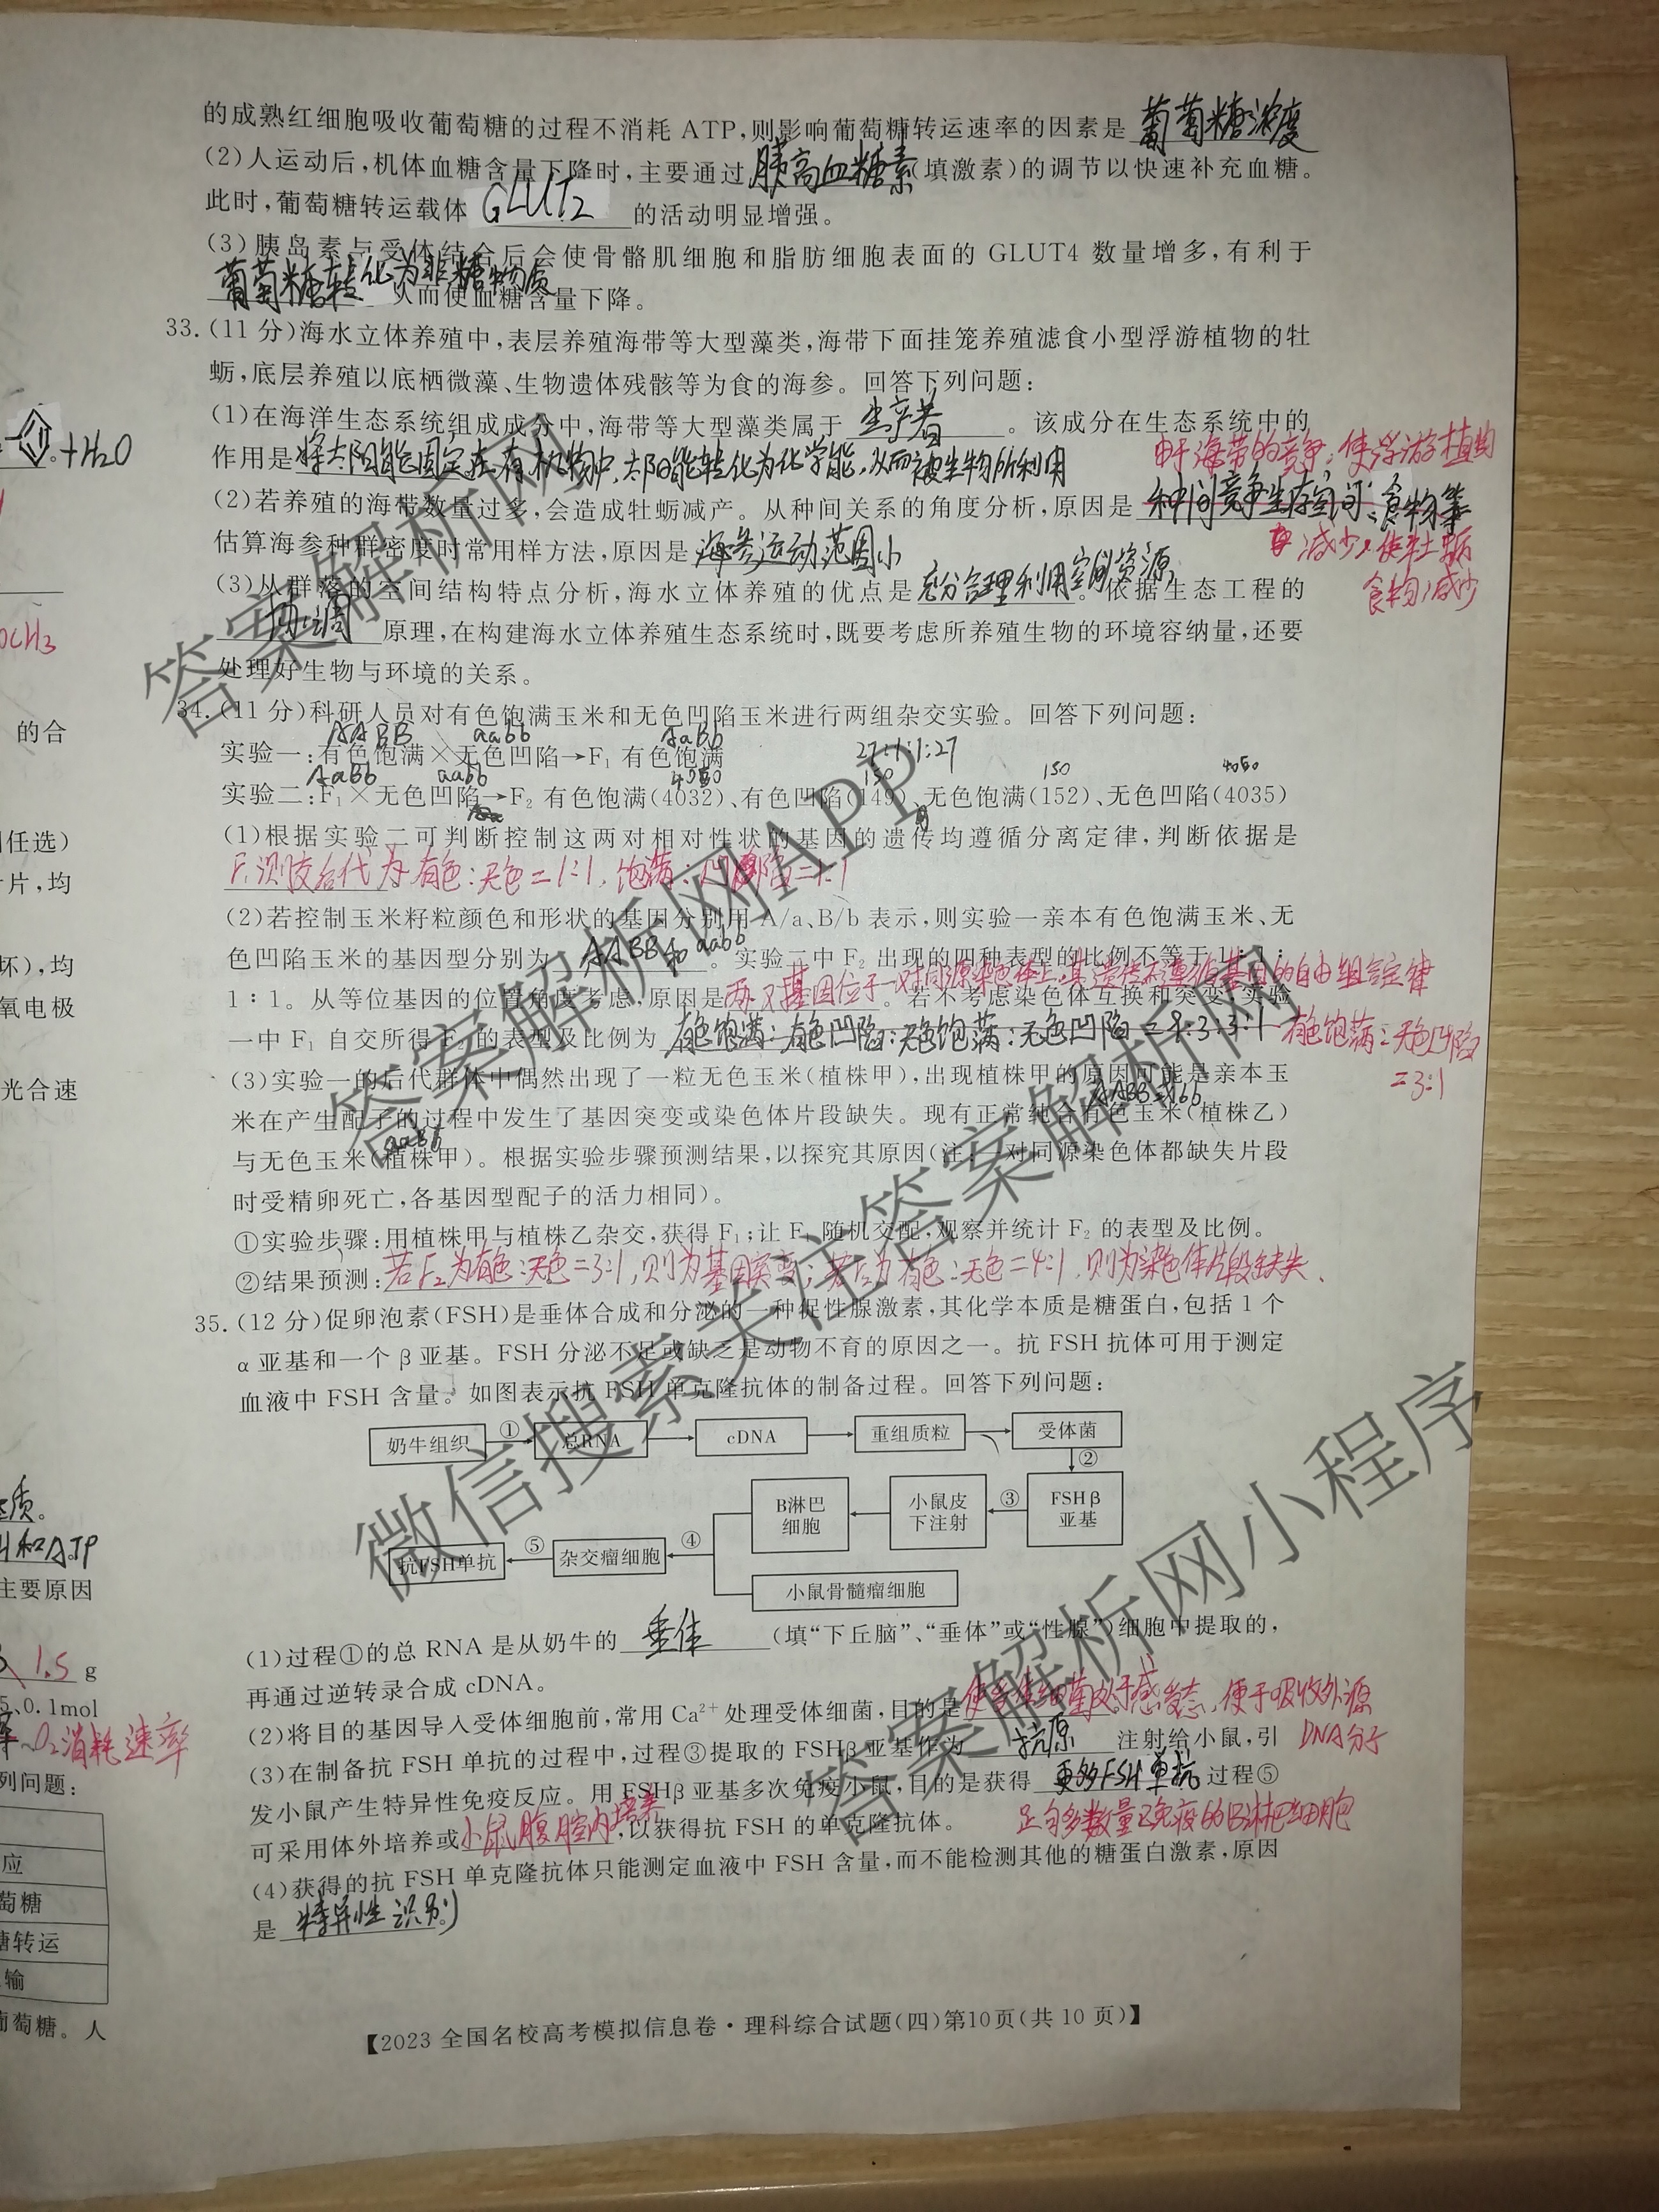 的成熟红细胞吸收葡萄糖的过程不消耗 ATP,则影响葡萄糖转运速率的因素是 葡萄糖浓度
(2)人运动后,机体血糖含量下降时,主要通过 胰高血糖素 (填激素)的调节以快速补充血糖。
此时,葡萄糖转运载体 GLUT2 的活动明显增强。
(3)胰岛素与受体结合后会使骨骼肌细胞和脂肪细胞表面的 GLUT4 数量增多,有利于
葡萄糖转化为非糖物质 从而使血糖含量下降。
33.(11 分)海水立体养殖中,表层养殖海带等大型藻类,海带下面挂笼养殖滤食小型浮游植物的牡
蛎,底层养殖以底栖微藻、生物遗体残骸等为食的海参。回答下列问题:
(1)在海洋生态系统组成成分中,海带等大型藻类属于 生产者 。该成分在生态系统中的
+H2O
作用是 将太阳能固定在有机物中,太阳能转化为化学能,从而被生物所利用
由于海带的竞争,使浮游植物
(2)若养殖的海带数量过多,会造成牡蛎减产。从种间关系的角度分析,原因是 种间竞争生存空间、食物等
减少,使牡蛎
食物减少
估算海参种群密度时常用样方法,原因是 海参运动范围小
(3)从群落的空间结构特点分析,海水立体养殖的优点是 充分合理利用空间资源 。依据生态工程的
协调 原理,在构建海水立体养殖生态系统时,既要考虑所养殖生物的环境容纳量,还要
OCH3
处理好生物与环境的关系。
34.(11 分)科研人员对有色饱满玉米和无色凹陷玉米进行两组杂交实验。回答下列问题:
的合
AABB aabb AaBb
实验一:有色饱满×无色凹陷→F1 有色饱满
27:1:1:27
AaBb aabb 4050 150 150 4050
实验二:F1×无色凹陷→F2 有色饱满(4032)、有色凹陷(149)、无色饱满(152)、无色凹陷(4035)
(1)根据实验二可判断控制这两对相对性状的基因的遗传均遵循分离定律,判断依据是
任选)
F1测交后代为有色:无色=1:1,饱满:凹陷=1:1
片,均
(2)若控制玉米籽粒颜色和形状的基因分别用 A/a、B/b 表示,则实验一亲本有色饱满玉米、无
色凹陷玉米的基因型分别为 AABB和aabb 。实验二中 F2 出现的四种表型的比例不等于 1∶1∶
坏),均
1∶1。从等位基因的位置角度考虑,原因是 两对基因位于一对同源染色体上,其遗传不遵循基因的自由组合定律 。若不考虑染色体互换和突变,实验
氧电极
一中 F1 自交所得 F2 的表型及比例为 有色饱满:有色凹陷:无色饱满:无色凹陷=9:3:3:1 有色饱满:无色凹陷
=3:1
(3)实验一的后代群体中偶然出现了一粒无色玉米(植株甲),出现植株甲的原因可能是亲本玉
光合速
米在产生配子的过程中发生了基因突变或染色体片段缺失。现有正常纯合有色玉米(植株乙)
aaBb
与无色玉米(植株甲)。根据实验步骤预测结果,以探究其原因(注:一对同源染色体都缺失片段
时受精卵死亡,各基因型配子的活力相同)。
①实验步骤:用植株甲与植株乙杂交,获得 F1;让 F1 随机交配,观察并统计 F2 的表型及比例。
②结果预测:若F2为有色:无色=3:1,则为基因突变;若F2为有色:无色=4:1,则为染色体片段缺失、
35.(12 分)促卵泡素(FSH)是垂体合成和分泌的一种促性腺激素,其化学本质是糖蛋白,包括 1 个
α 亚基和一个 β 亚基。FSH 分泌不足或缺乏是动物不育的原因之一。抗 FSH 抗体可用于测定
血液中 FSH 含量。如图表示抗 FSH 单克隆抗体的制备过程。回答下列问题:
奶牛组织 ① 总RNA cDNA 重组质粒 受体菌
②
B淋巴细胞 小鼠皮下注射 ③ FSHβ亚基
抗FSH单抗 ⑤ 杂交瘤细胞 ④
小鼠骨髓瘤细胞
质。
和ATP
主要原因
(1)过程①的总 RNA 是从奶牛的 垂体 (填“下丘脑”、“垂体”或“性腺”)细胞中提取的,
1.5 g
再通过逆转录合成 cDNA。
0.1mol
(2)将目的基因导入受体细胞前,常用 Ca2+ 处理受体细菌,目的是 使受体细菌处于感受态,便于吸收外源
DNA分子
~O2消耗速率
(3)在制备抗 FSH 单抗的过程中,过程③提取的 FSHβ 亚基作为 抗原 注射给小鼠,引
列问题:
发小鼠产生特异性免疫反应。用 FSHβ 亚基多次免疫小鼠,目的是获得 更多FSH单抗 过程⑤
足够多数量已免疫的B淋巴细胞
可采用体外培养或 小鼠腹腔内培养 ,以获得抗 FSH 的单克隆抗体。
应
(4)获得的抗 FSH 单克隆抗体只能测定血液中 FSH 含量,而不能检测其他的糖蛋白激素,原因
萄糖
是 特异性识别
糖转运
输
葡萄糖。人
【2023 全国名校高考模拟信息卷·理科综合试题(四)第10页(共 10 页)】
答案解析网
答案解析网APP
微信搜索关注答案解析网
答案解析网小程序